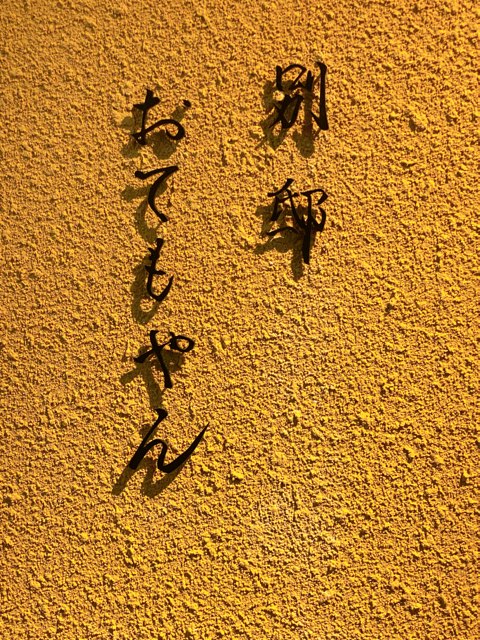 別邸
おてもやん